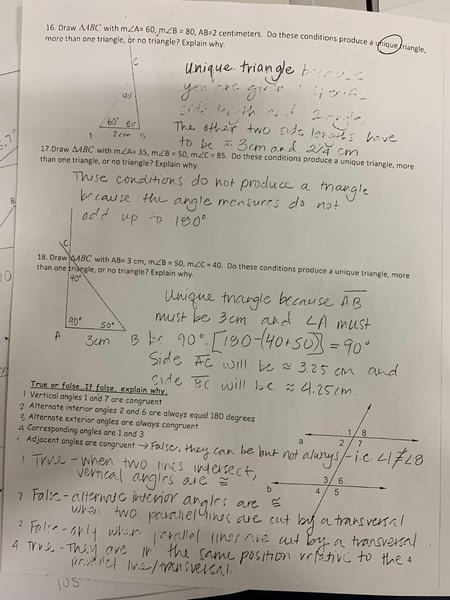 16. Draw ΔABC with m∠A= 60, m∠B = 80, AB=2 centimeters. Do these conditions produce a unique triangle,
more than one triangle, or no triangle? Explain why.
Unique triangle because
you are given
side length and 2 angles
The other two side lengths have
to be ≈ 3cm and
C
40°
60° 80°
2cm B
17.Draw ΔABC with m∠A= 35, m∠B = 50, m∠C = 85. Do these conditions produce a unique triangle, more
than one triangle, or no triangle? Explain why.
These conditions do not produce a triangle
because the angle mensures do not
add up to 180°
18. Draw ΔABC with AB= 3 cm, m∠B = 50, m∠C = 40. Do these conditions produce a unique triangle, more
than one triangle, or no triangle? Explain why.
C
40°
90° 50°
A 3cm B
Unique triangle because AB
must be 3cm and ∠A must
be 90°. [180-(40+50)] = 90°
Side AC will be ≈ 3.25 cm and
side BC will be ≈ 4.25cm.
True or false. If false, explain why.
1 Vertical angles 1 and 7 are congruent
2 Alternate interior angles 2 and 6 are always equal 180 degrees
3 Alternate exterior angles are always congruent
4 Corresponding angles are 1 and 3
5 Adjacent angles are congruent → False, they can be but not always - i.e. ∠1≠∠8
1 True - when two lines intersect,
vertical angles are ≅
2 False - alternate interior angles are ≅
when two parallel lines are cut by a transversal
False - only when parallel lines are cut by a transversal
4 True - They are in the same position relative to the
parallel line/transversal.
a
1 8
2 7
b
3 6
4 5
105°